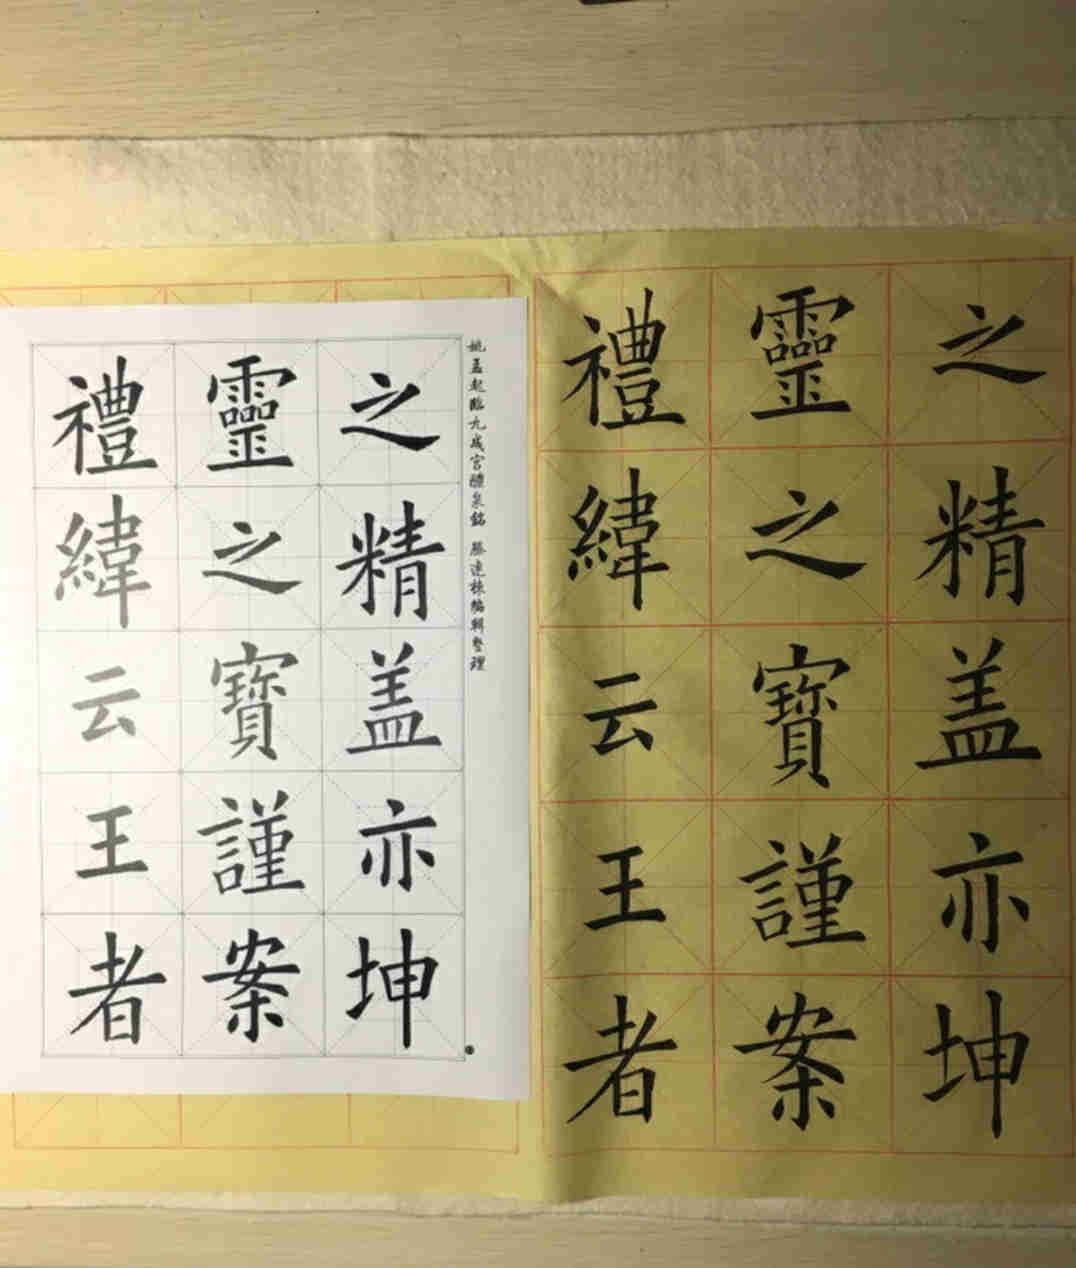 之精盖亦坤
靈之寶謹案
禮緯云王者
姚孟起臨九成宮醴泉銘 編輯整理
之精盖亦坤
靈之寶謹案
禮緯云王者